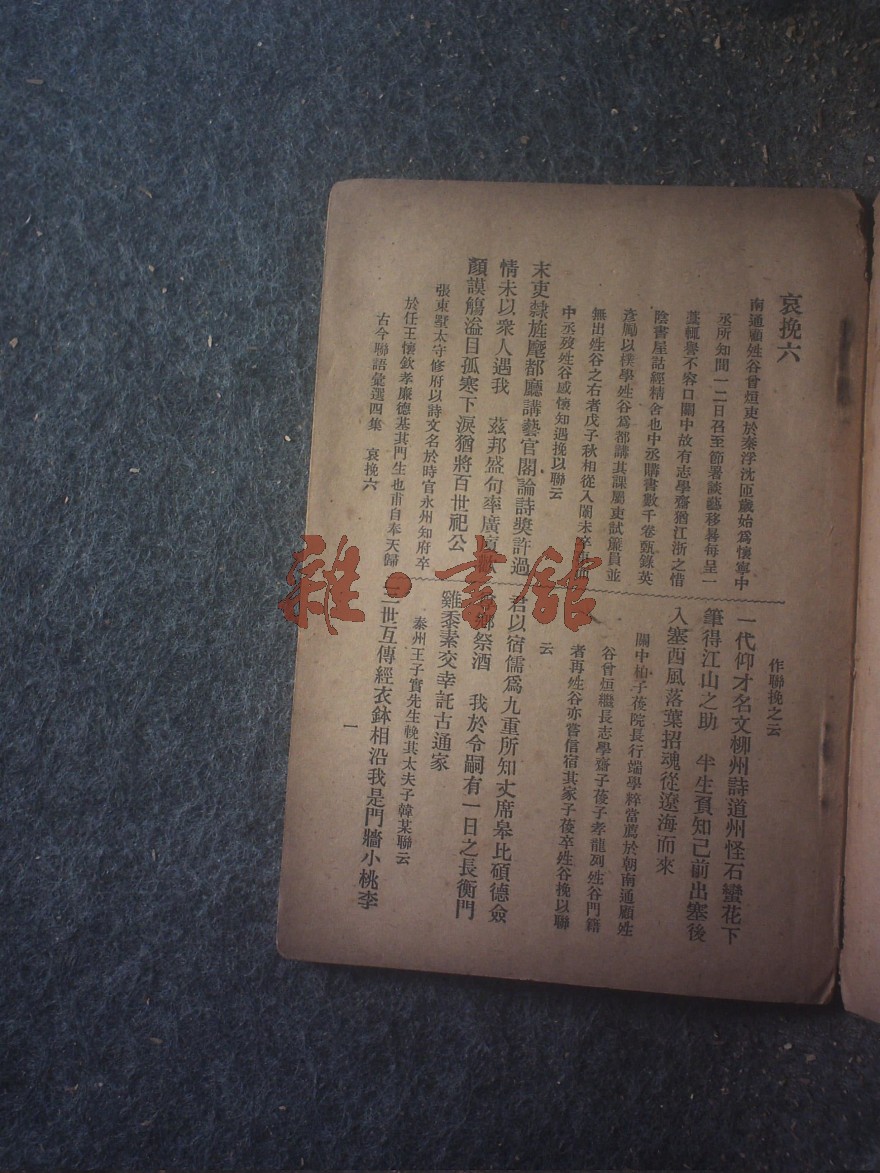 哀挽六
南通顧姓谷曾烜吏於秦浮沈匝歲始爲懷寧中
丞所知間一二日召至節署談藝移晷每呈一
藁輒譽不容口關中故有志學齋猶江浙之惜
陰書屋詁經精舍也中丞購書數千卷甄錄英
彥勵以樸學姓谷爲都講其課屬吏試簾員並
無出姓谷之右者戊子秋相從入闈未卒事而
中丞歿姓谷感懷知遇挽以聯云
末吏隸旌麾都廳講藝官閣論詩獎許過
情未以衆人遇我　茲邦盛句率廣
顏謨觴溢目孤寒下淚猶將百世祀公
張東墅太守修府以詩文名於時官永州知府卒
於任王懷欽孝廉德基其門生也甫自奉天歸
作聯挽之云
一代仰才名文柳州詩道州怪石蠻花下
筆得江山之助　半生負知己前出塞後
入塞西風落葉招魂從遼海而來
關中柏子莜院長行端學粹當薦於朝南通顧姓
谷曾烜繼長志學齋子莜子孝龍列姓谷門籍
者再姓谷亦嘗信宿其家子莜卒姓谷挽以聯
云
君以宿儒爲九重所知丈席皋比碩德僉
鄉祭酒　我於令嗣有一日之長衡門
雞黍素交幸託古通家
泰州王子實先生輓其太夫子韓某聯云
三世互傳經衣鉢相沿我是門牆小桃李
古今聯語彙選四集　哀挽六
一
雜·書館